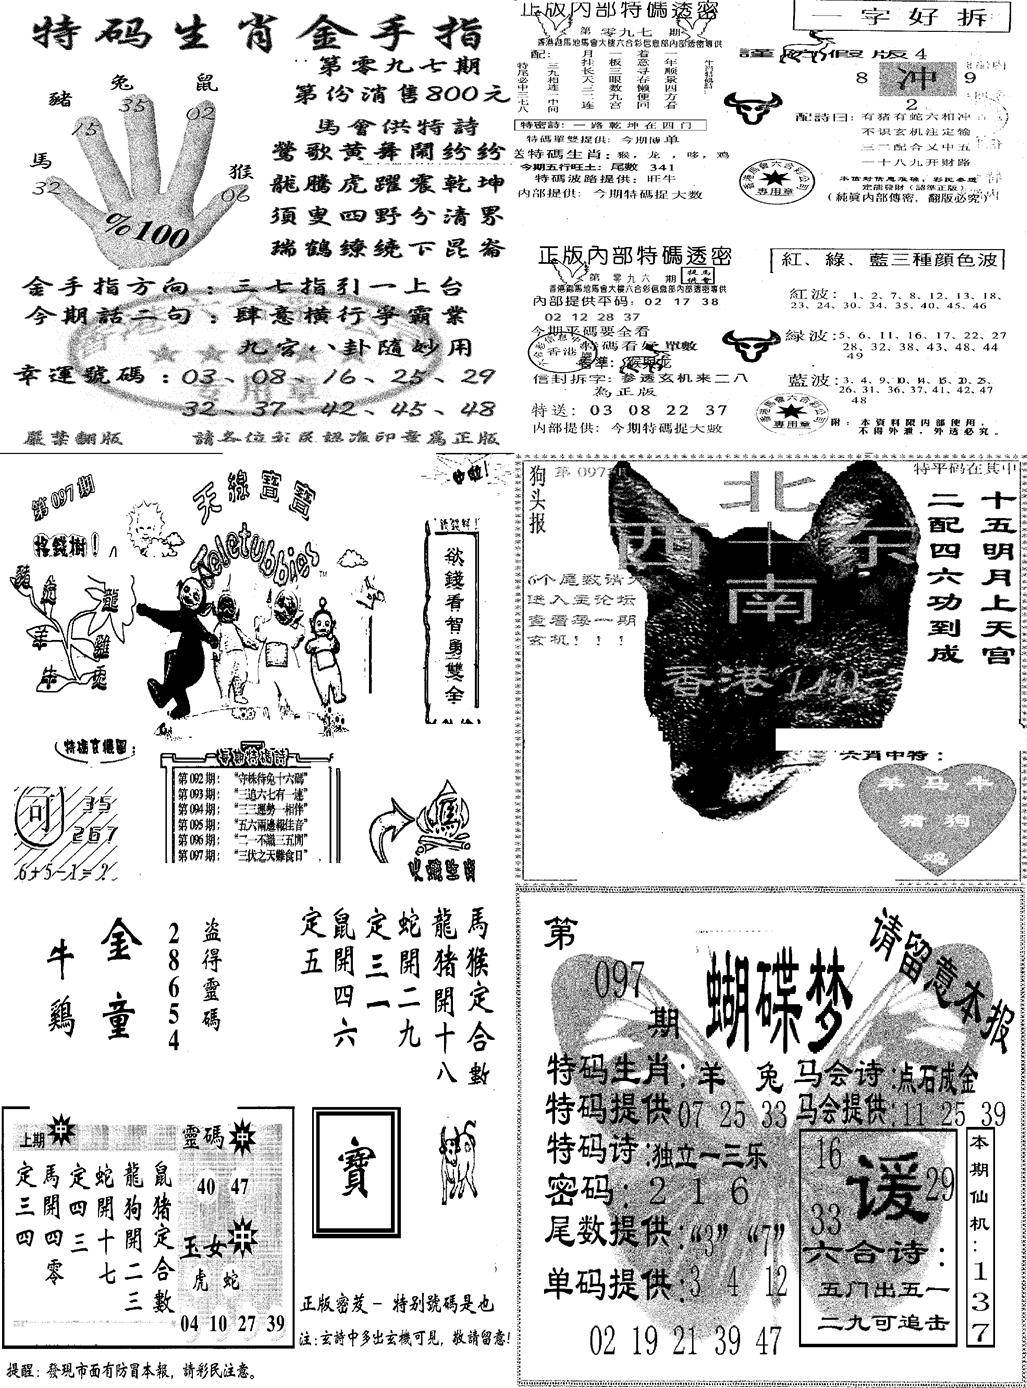 特码生肖金手指
第零九七期
第份消售800元
馬會供特詩
鶯歌黄舞鬧紛紛
龍騰虎躍震乾坤
須臾四野分清界
瑞鶴繚繞下昆崙
豬
兔
鼠
馬
猴
15
35
02
32
06
%100
金手指方向：三七指引一上台
今期話二句：肆意横行爭霸業
九宮八卦隨妙用
幸運號碼：03、08、16、25、29
32、37、42、45、48
嚴禁翻版
請各位彩民認准印章爲正版
正版内部特碼透密
第零九七期
香港跑馬地馬會大樓六合彩信息部内部透密專供
配：
特尾必中三七八
三九相连一中间
月挂长天三二连
一板三眼数九宫
着意寻春懒便回
一年顺景四方看
特密詩：一路乾坤在四门
特碼單雙提供：今期博单
送特碼生肖：猴，龙，哆，鸡
今期五行旺土：尾數 341
特碼波路提供：旺牛
内部提供：今期特碼捉大数
一字好拆
謹防假版4
8
冲
9
2
配詩曰：有豬有蛇六相冲
不识玄机注定输
三二配合又中五
一十八九开财路
定能發財（認準正版）
（純眞内部傳密，翻版必究）
香港馬會六合彩公司
專用章
正版內部特碼透密
第零九六期
提供
馬會
香港跑馬地馬會大樓六合彩信息部内部透密專供
內部提供平码：02 17 38
02 12 28 37
今期平碼要全看
特碼看好單數
看準：猴與龙
香港
信封拆字：参透玄机来二八
為正版
特送：03 08 22 37
内部提供：今期特碼捉大數
紅、綠、藍三種顔色波
紅波：1、2、7、8、12、13、18、
23、24、30、34、35、40、45、46
緑波：5、6、11、16、17、22、27
28、32、38、43、48、44
49
藍波：3、4、9、10、14、15、20、25、
26、31、36、37、41、42、47
48
香港馬會六合彩公司
專用章
附：本資料限内部使用，
不得外泄，外透必究。
第097期
天線寶寶
Teletubbies
搖錢樹！
豬
虎
龍
羊
雞
牛
兎
欲錢看智勇雙全
特碼玄機圖：
可
35
267
6+5-1=?
每期特碼詩
第092期：“守株待兔十六碼”
第093期：“三追六七有一連”
第094期：“三三運勢一相伴”
第095期：“五六兩邊報佳音”
第096期：“二一不識三五閒”
第097期：“三伏之天難食日”
火燒生肖
狗头报
第097期
特平码在其中
北
西十东
南
香港
十五明月上天宫
二配四六功到成
6个尾数请大
进入坛论坛
查看每一期
玄机！！！
六肖中特：
羊马牛
猪狗
鸡
牛鷄
金童
28654
盜得靈碼
馬猴定合數
龍猪開十八
蛇開二九
定三一
鼠開四六
定五
上期
中
鼠猪定合數
龍狗開二三
蛇開十七
定四三
馬開四零
定三四
靈碼
中
40 47
玉女
中
虎 蛇
04 10 27 39
寶
正版密芨－特别號碼是也
注：玄詩中多出玄機可見，敬請留意！
提醒：發現市面有防冒本報，請彩民注意。
第
097
期
蝴蝶梦
请留意本报
特码生肖：羊 兔
马会诗：点石成金
特码提供：07 25 33
马会提供：11 25 39
特码诗：独立一三乐
密码：2 1 6
尾数提供：“3”“7”
单码提供：3 4 12
02 19 21 39 47
16
29
33
谖
六合诗：
五门出五一
二九可追击
本期仙机：137